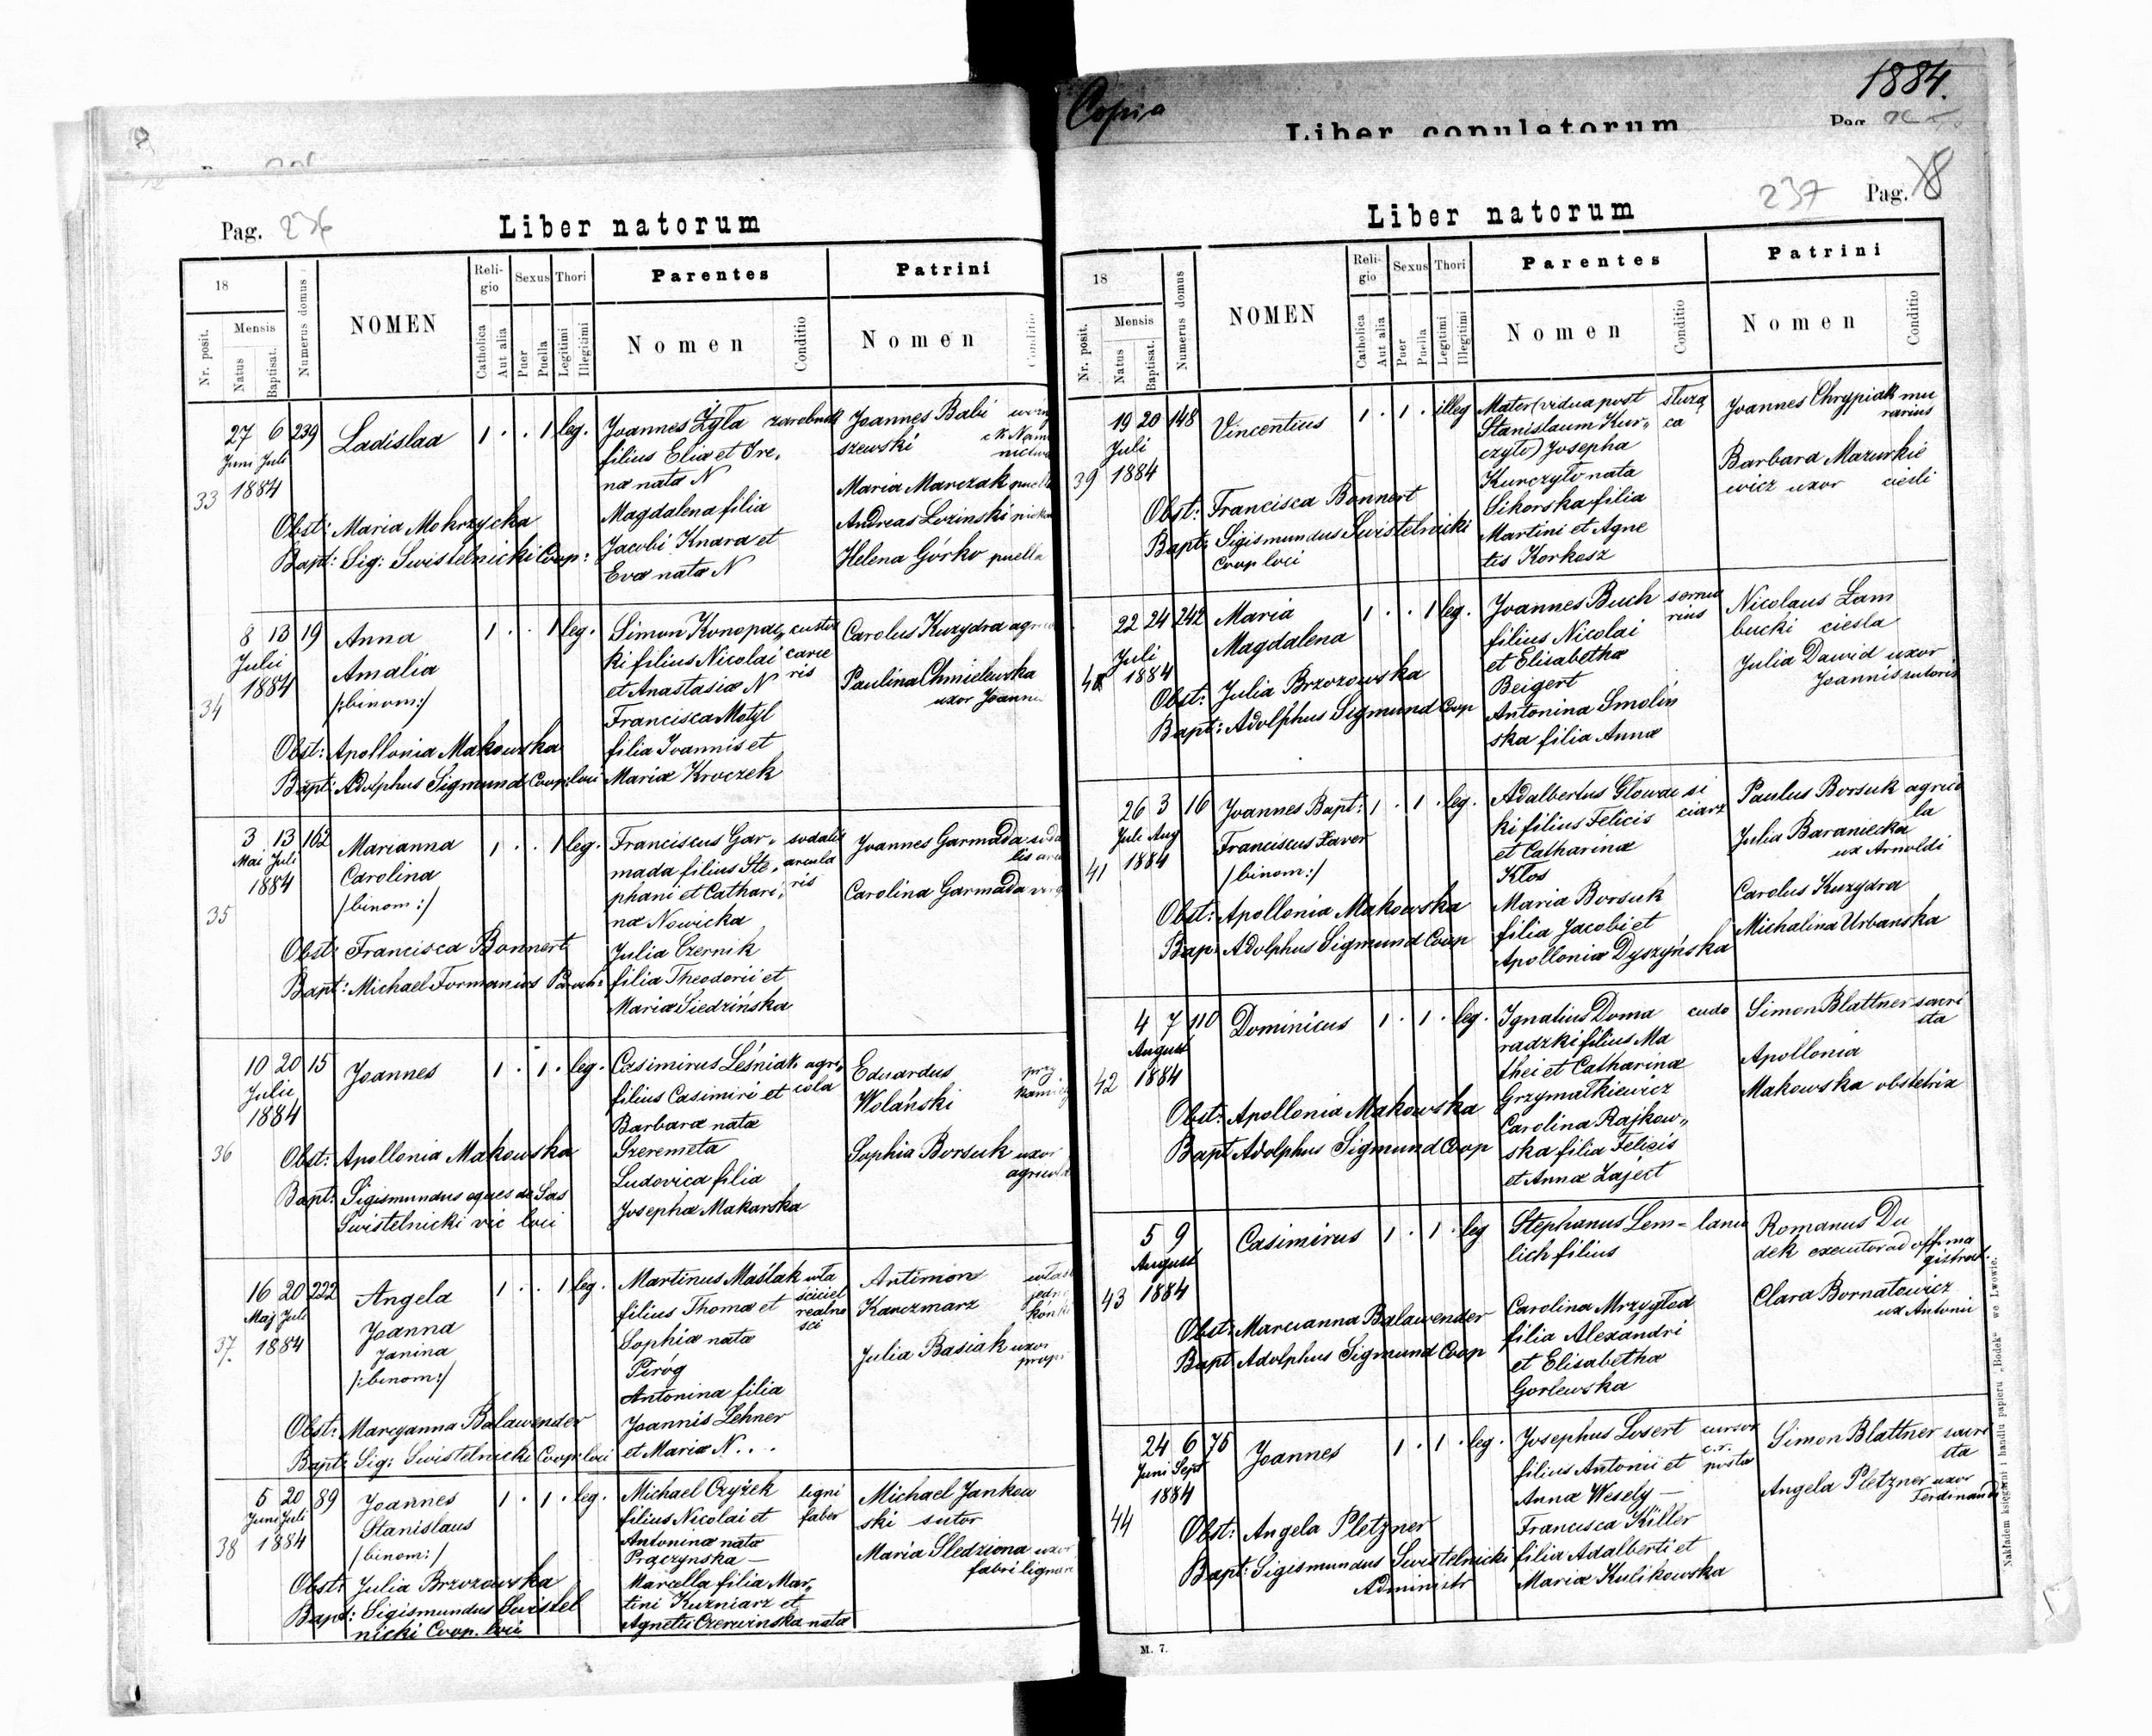 Copia
1884.
Liber copulatorum
Pag.
Pag. 236
Liber natorum
18
Nr. posit.
Mensis
Natus
Baptisat.
Numerus domus
NOMEN
Reli-
gio
Catholica
Aut alia
Sexus
Puer
Puella
Thori
Legitimi
Illegitimi
Parentes
Nomen
Conditio
Patrini
Nomen
Conditio
33
27 6 239
Juni Juli
1884
Ladislaa
1 . . 1 leg.
Joannes Żyła zarobnik
filius Eliæ et Ire,
næ natæ N
Magdalena filia
Jacobi Knara et
Evæ natæ N
Joannes Babi
szewski
Maria Marczak
Andreas Lozinski
Helena Górko puella
Obst: Maria Mokrzycka
Bapt: Sig: Swistelnicki Coop:
34
8 13 19
Julii
1884
Anna
Amalia
/:binom:/
1 . . 1 leg.
Simon Konopac,, custos
ki filius Nicolai carce
et Anastasiæ N ris
Francisca Motyl
filia Joannis et
Mariæ Kroczek
Carolus Kuzydra
Paulina Chmielewska
uxor
Obst: Apollonia Makowska
Bapt: Adolphus Sigmund Coop: loci
35
3 13 162
Mai Juli
1884
Marianna
Carolina
/binom:/
1 . . 1 leg.
Franciscus Gar- sodalis
mada filius Ste, arcula
phani et Cathari, ris
næ Nowicka
Julia Czernik
filia Theodorii et
Mariæ Siedzińska
Joannes Garmada
Carolina Garmada
Obst: Francisca Bonnert
Bapt: Michael Formanios Paroch:
36
10 20 15
Julii
1884
Joannes
1 . 1 . leg.
Casimirus Leśniak agri,
filius Casimiri et cola
Barbaræ natæ
Szeremeta
Ludovica filia
Josephæ Makarska
Eduardus
Wolański
Sophia Borsuk uxor
Obst: Apollonia Makowska
Bapt: Sigismundus eques de Sas
Swistelnicki vic loci
37.
16 20 222
Maj Juli
1884
Angela
Joanna
Janina
/:binom:/
1 . . 1 leg.
Martinus Maślak wła
filius Thomæ et sciciel
Sophiæ natæ realno
Piróg sci
Antonina filia
Joannis Lehner
et Mariæ N...
Antimon
Karczmarz
Julia Basiak uxor
Obst: Marcyanna Balawender
Bapt: Sig: Swistelnicki Coop: loci
38
5 20 89
Juni Juli
1884
Joannes
Stanislaus
/binom:/
1 . 1 . leg.
Michael Czyżek ligni
filius Nicolai et faber
Antoninæ natæ
Prączynska —
Marcella filia Mar,,
tini Kuzniarz et
Agnetis Czerwinska natæ
Michael Jankow
ski sutor
Maria Sledziona
fabri
Obst: Julia Brzozowska
Bapt: Sigismundus Swistel
nicki Coop. loci
Liber natorum
237 Pag. 18
18
Nr. posit.
Mensis
Natus
Baptisat.
Numerus domus
NOMEN
Reli-
gio
Catholica
Aut alia
Sexus
Puer
Puella
Thori
Legitimi
Illegitimi
Parentes
Nomen
Conditio
Patrini
Nomen
Conditio
39
19 20 148
Juli
1884
Vincentius
1 . 1 . illeg
Mater (vidua post służą
Stanislaum Kur,, ca
czyło) Josepha
Kurczyło nata
Sikorska filia
Martini et Agne
tis Korkosz
Joannes Chrypiak mu
rarius
Barbara Mazurkie
wicz uxor cieśli
Obst: Francisca Bonnert
Bapt: Sigismundus Swistelnicki
Coop loci
40
22 24 242
Juli
1884
Maria
Magdalena
1 . . 1 leg.
Joannes Buch
filius Nicolai
et Elisabethæ
Beigert
Antonina Smolin
ska filia Annæ
Nicolaus Lam
bucki ciesla
Julia Dawid uxor
Joannis sutoris
Obst: Julia Brzozowska
Bapt: Adolphus Sigmund Coop
41
26 3 16
Juli Aug
1884
Joannes Bapt:
Franciscus Xaver
/binom:/
1 . 1 . leg.
Adalbertus Głowac si
ki filius Felicis ciarz
et Catharinæ
Klos
Maria Borsuk
filia Jacobi et
Apolloniæ Dyszyńska
Paulus Borsuk agrico
la
Julia Baraniecka
ux Arnoldi
Carolus Kuzydra
Michalina Urbanska
Obst: Apollonia Makowska
Bap: Adolphus Sigmund Coop
42
4 7 110
August
1884
Dominicus
1 . 1 . leg.
Ignatius Doma cudo
radzki filius Ma
thei et Catharinæ
Grzymałkiewicz
Carolina Rajkow,,
ska filia Felicis
et Annæ Zaject
Simon Blattner sacri
sta
Apollonia
Makowska obstetrix
Obst: Apollonia Makowska
Bapt Adolphus Sigmund Coop
43
5 9
August
1884
Casimirus
1 . 1 . leg
Stephanus Lem- lanio
lich filius
Carolina Mrzygłod
filia Alexandri
et Elisabethæ
Gorlewska
Romanus Du
dek executor ad off: ma
gistrat.
Clara Bornatowicz
ux Antonii
Obst: Marcianna Balawender
Bapt Adolphus Sigmund Coop
44
24 6 75
Juni Sept
1884
Joannes
1 . 1 . leg.
Josephus Losert cursor
filius Antonii et c.r.
Annæ Wesely — postæ
Francisca Killer
filia Adalberti et
Mariæ Kulikowska
Simon Blattner sacri
sta
Angela Pletzner uxor
Ferdinandi
Obst: Angela Pletzner
Bapt: Sigismundus Swistelnicki
Administr
M. 7.
Nakładem księgarni i handlu papieru „Bodek“ we Lwowie.